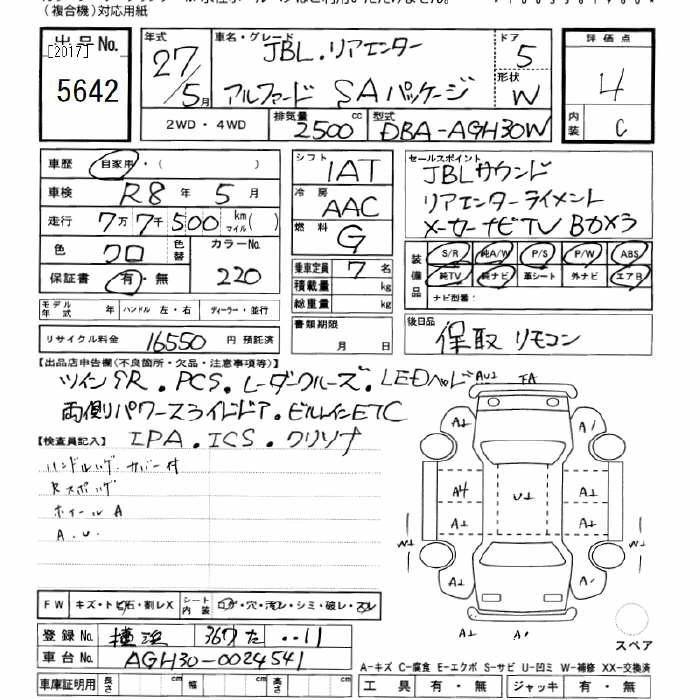 (複合機)対応用紙
出品No.
[2017]
5642
年式
27/5月
車名・グレード
JBL.リアエンター
アルファード SAパッケージ
ドア
5
形状
W
評価点
4
内装
C
2WD・4WD
排気量
2500cc
型式
DBA-AGH30W
車歴
自家用・( )
車検
R8年5月
走行
7万7千500 km マイル( )
色
クロ
色替
カラーNo.
220
保証書
有・無
モデル年式 年 ハンドル 左・右 ディーラー・並行
リサイクル料金 16550 円 預託済
シフト
IAT
冷房
AAC
燃料
G
乗車定員 7 名
積載量 kg
総重量 kg
書類期限
月 日
セールスポイント
JBLサウンド
リアエンターライメント
メーカーナビTV Bカメラ
装備品
S/R 純A/W P/S P/W ABS
純TV 純ナビ 革シート 外ナビ エアB
ナビ型番:
後日品
保取 リモコン
【出品店申告欄(不良箇所・欠品・注意事項等)】
ツインSR.PCS.レーダークルーズ.LEDヘッド
両側パワースライドドア.ビルトインETC
IPA.ICS.クリソナ
【検査員記入】
ハンドルハゲ カバー付
Rスポハゲ
ホイールA
A.U.
AU2 FA
A1 A1
A4 A1 U1 A1 A1
W1 W1
A1 A1
A1 A1
FW キズ・トビ石・割レX
シート内装 コゲ・穴・汚レ・シミ・破レ・スレ
登録No. 横浜 367 た ・・11
車台No. AGH30-0024541
車庫証明用 長さ cm 幅 cm 高さ cm
スペア
A-キズ C-腐食 E-エクボ S-サビ U-凹ミ W-補修 XX-交換済
工具 有・無 ジャッキ 有・無